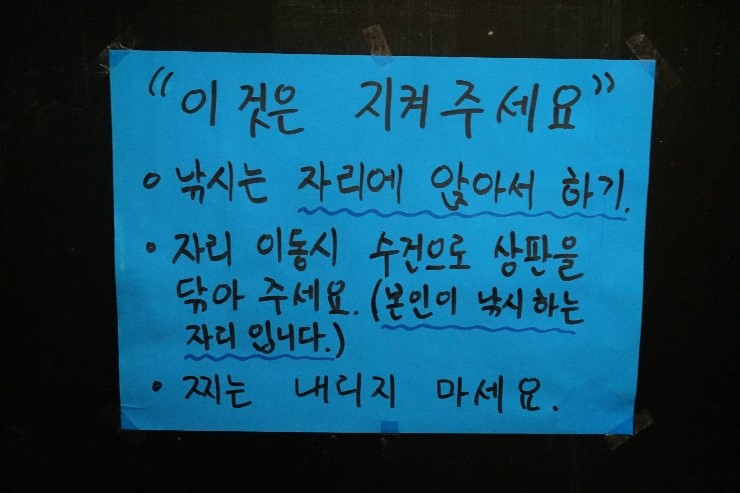 "이것은 지켜주세요"
• 낚시는 자리에 앉아서 하기.
• 자리 이동시 수건으로 상판을
닦아 주세요. (본인이 낚시하는
자리입니다.)
• 찌는 내리지 마세요.